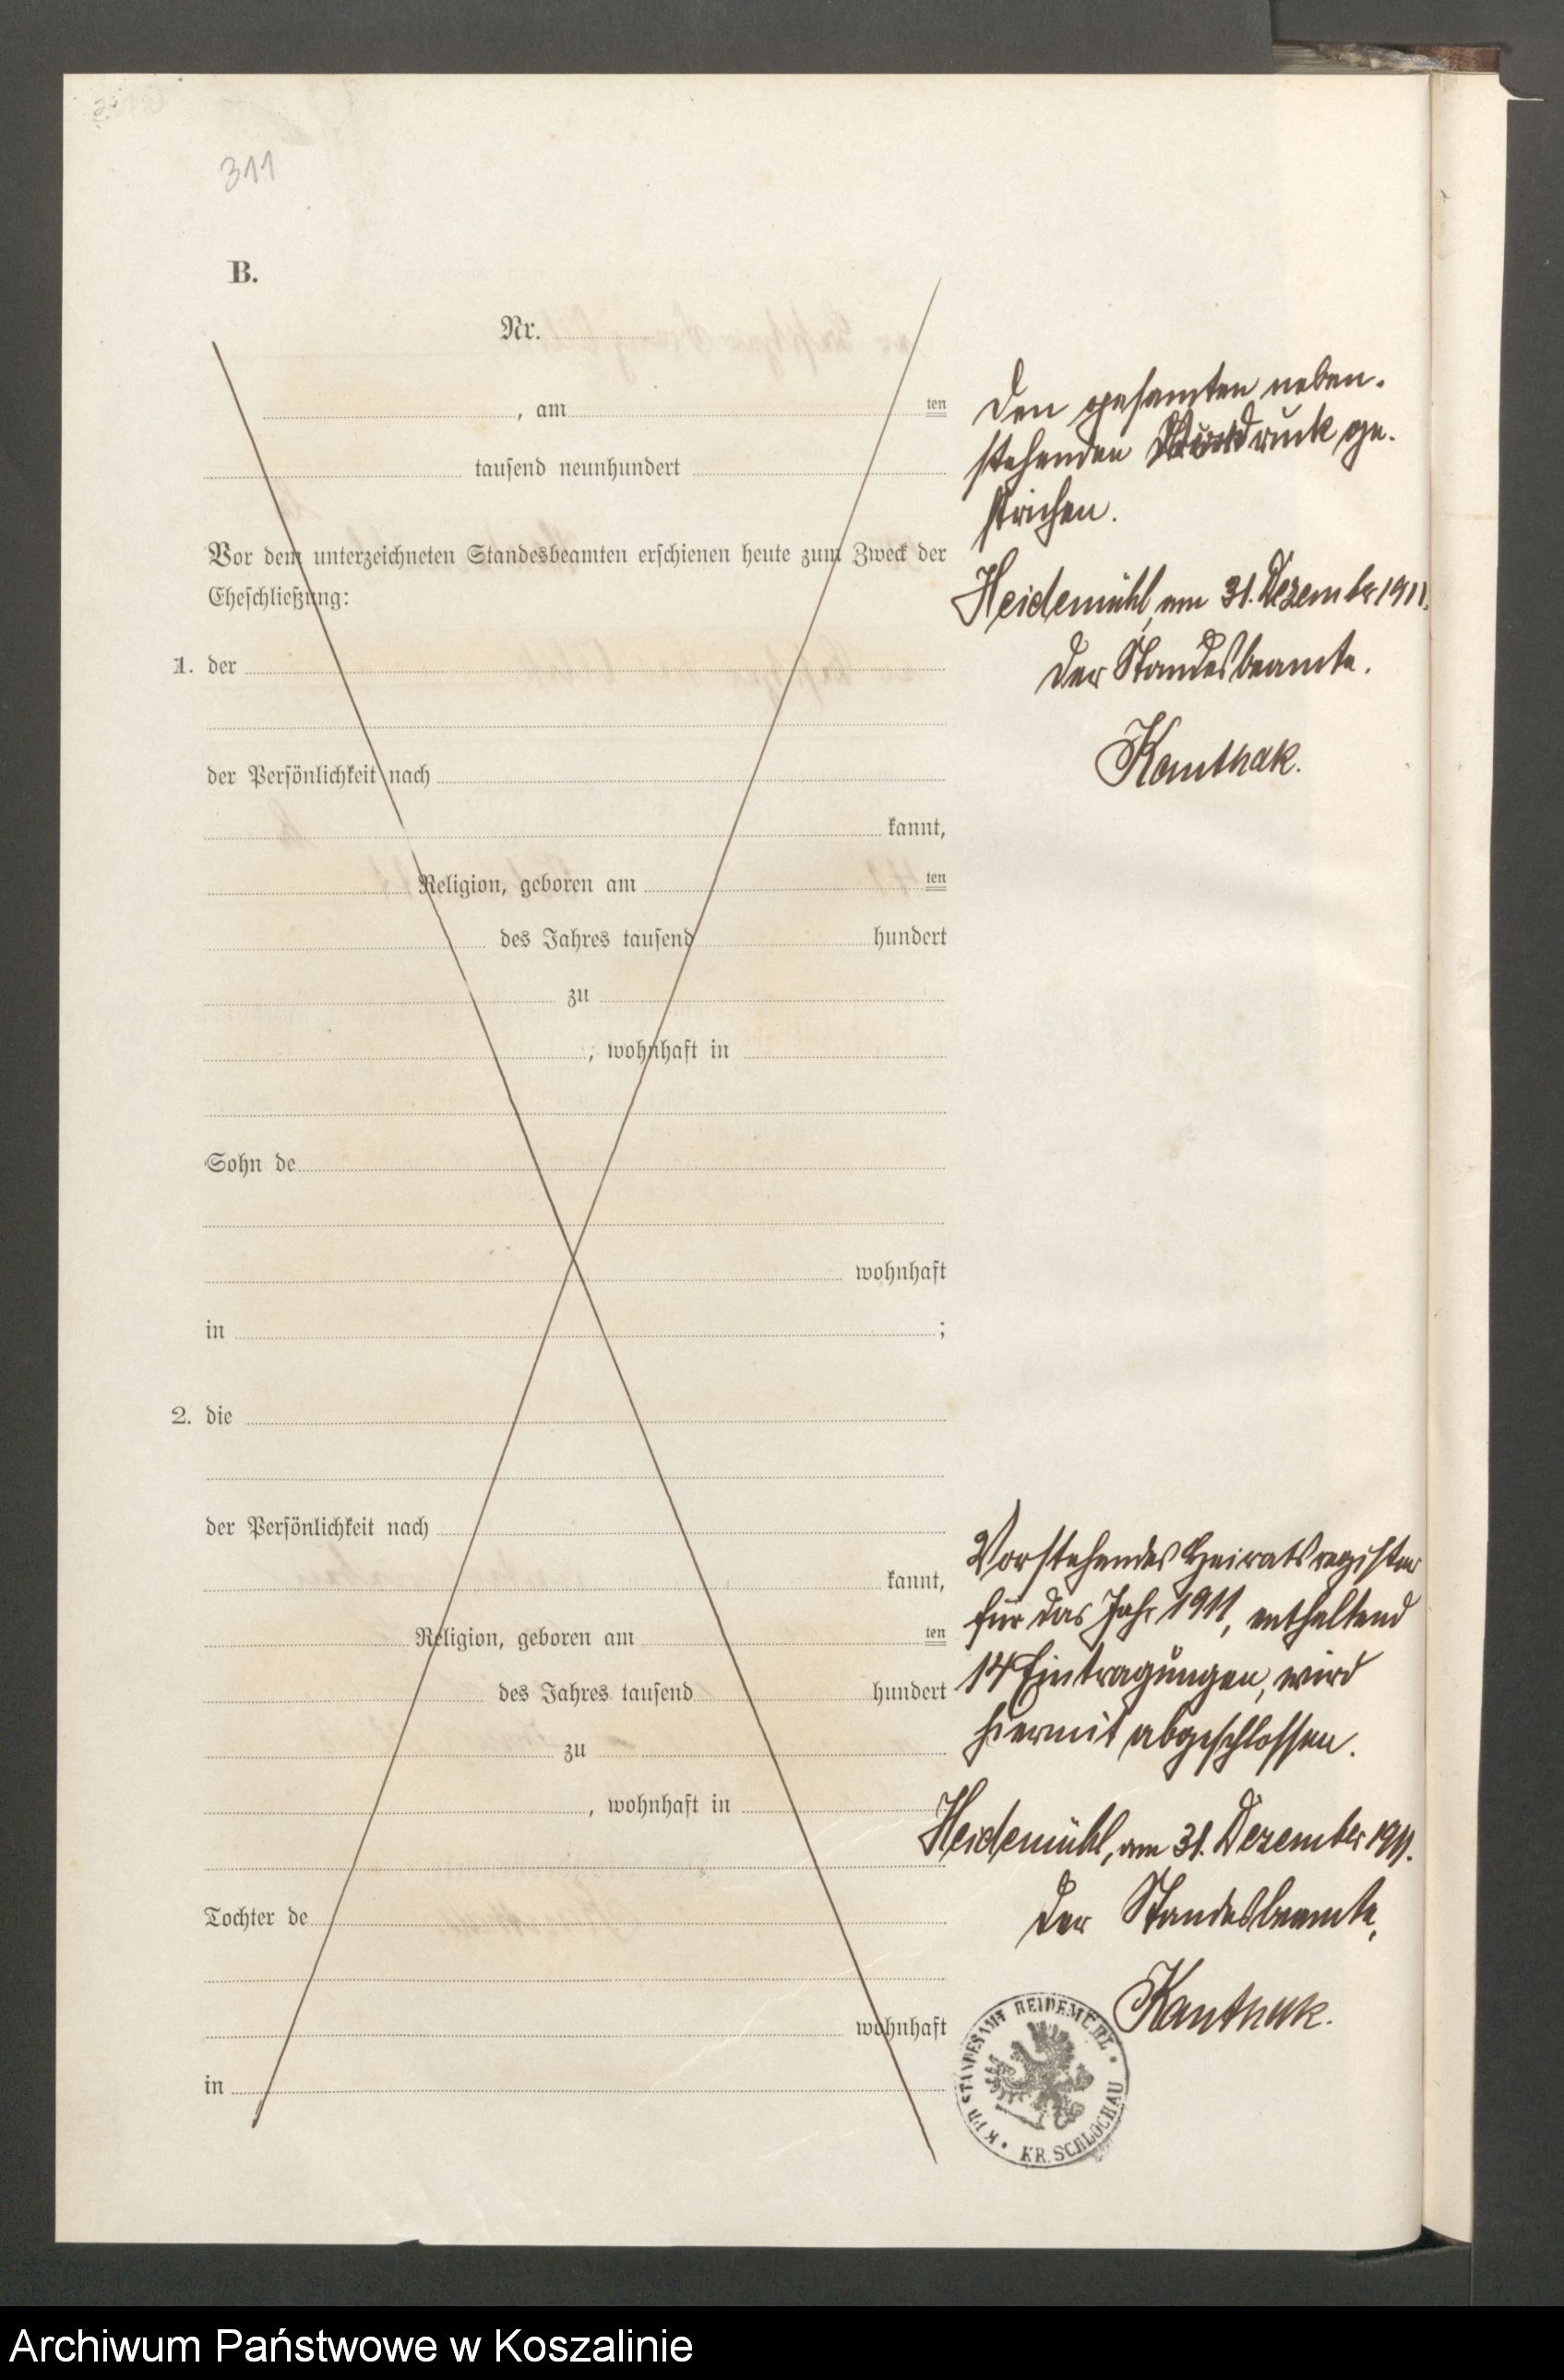 311
B.
Nr.
, am ten
tausend neunhundert
Vor dem unterzeichneten Standesbeamten erschienen heute zum Zweck der
Eheschließung:
1. der
der Persönlichkeit nach
kannt,
Religion, geboren am ten
des Jahres tausend hundert
zu
, wohnhaft in
Sohn de
wohnhaft
in ;
2. die
der Persönlichkeit nach
kannt,
Religion, geboren am ten
des Jahres tausend hundert
zu
, wohnhaft in
Tochter de
wohnhaft
in
Den gesamten neben-
stehenden Vordruck ge-
strichen.
Heidemühl, am 31. Dezember 1911.
Der Standesbeamte.
Kanthak.
Vorstehendes Heiratsregister
für das Jahr 1911, enthaltend
14 Eintragungen, wird
hiermit abgeschlossen.
Heidemühl, am 31. Dezember 1911.
Der Standesbeamte,
Kanthak.
K PR STANDESAMT HEIDEMÜHL
KR. SCHLOCHAU
Archiwum Państwowe w Koszalinie